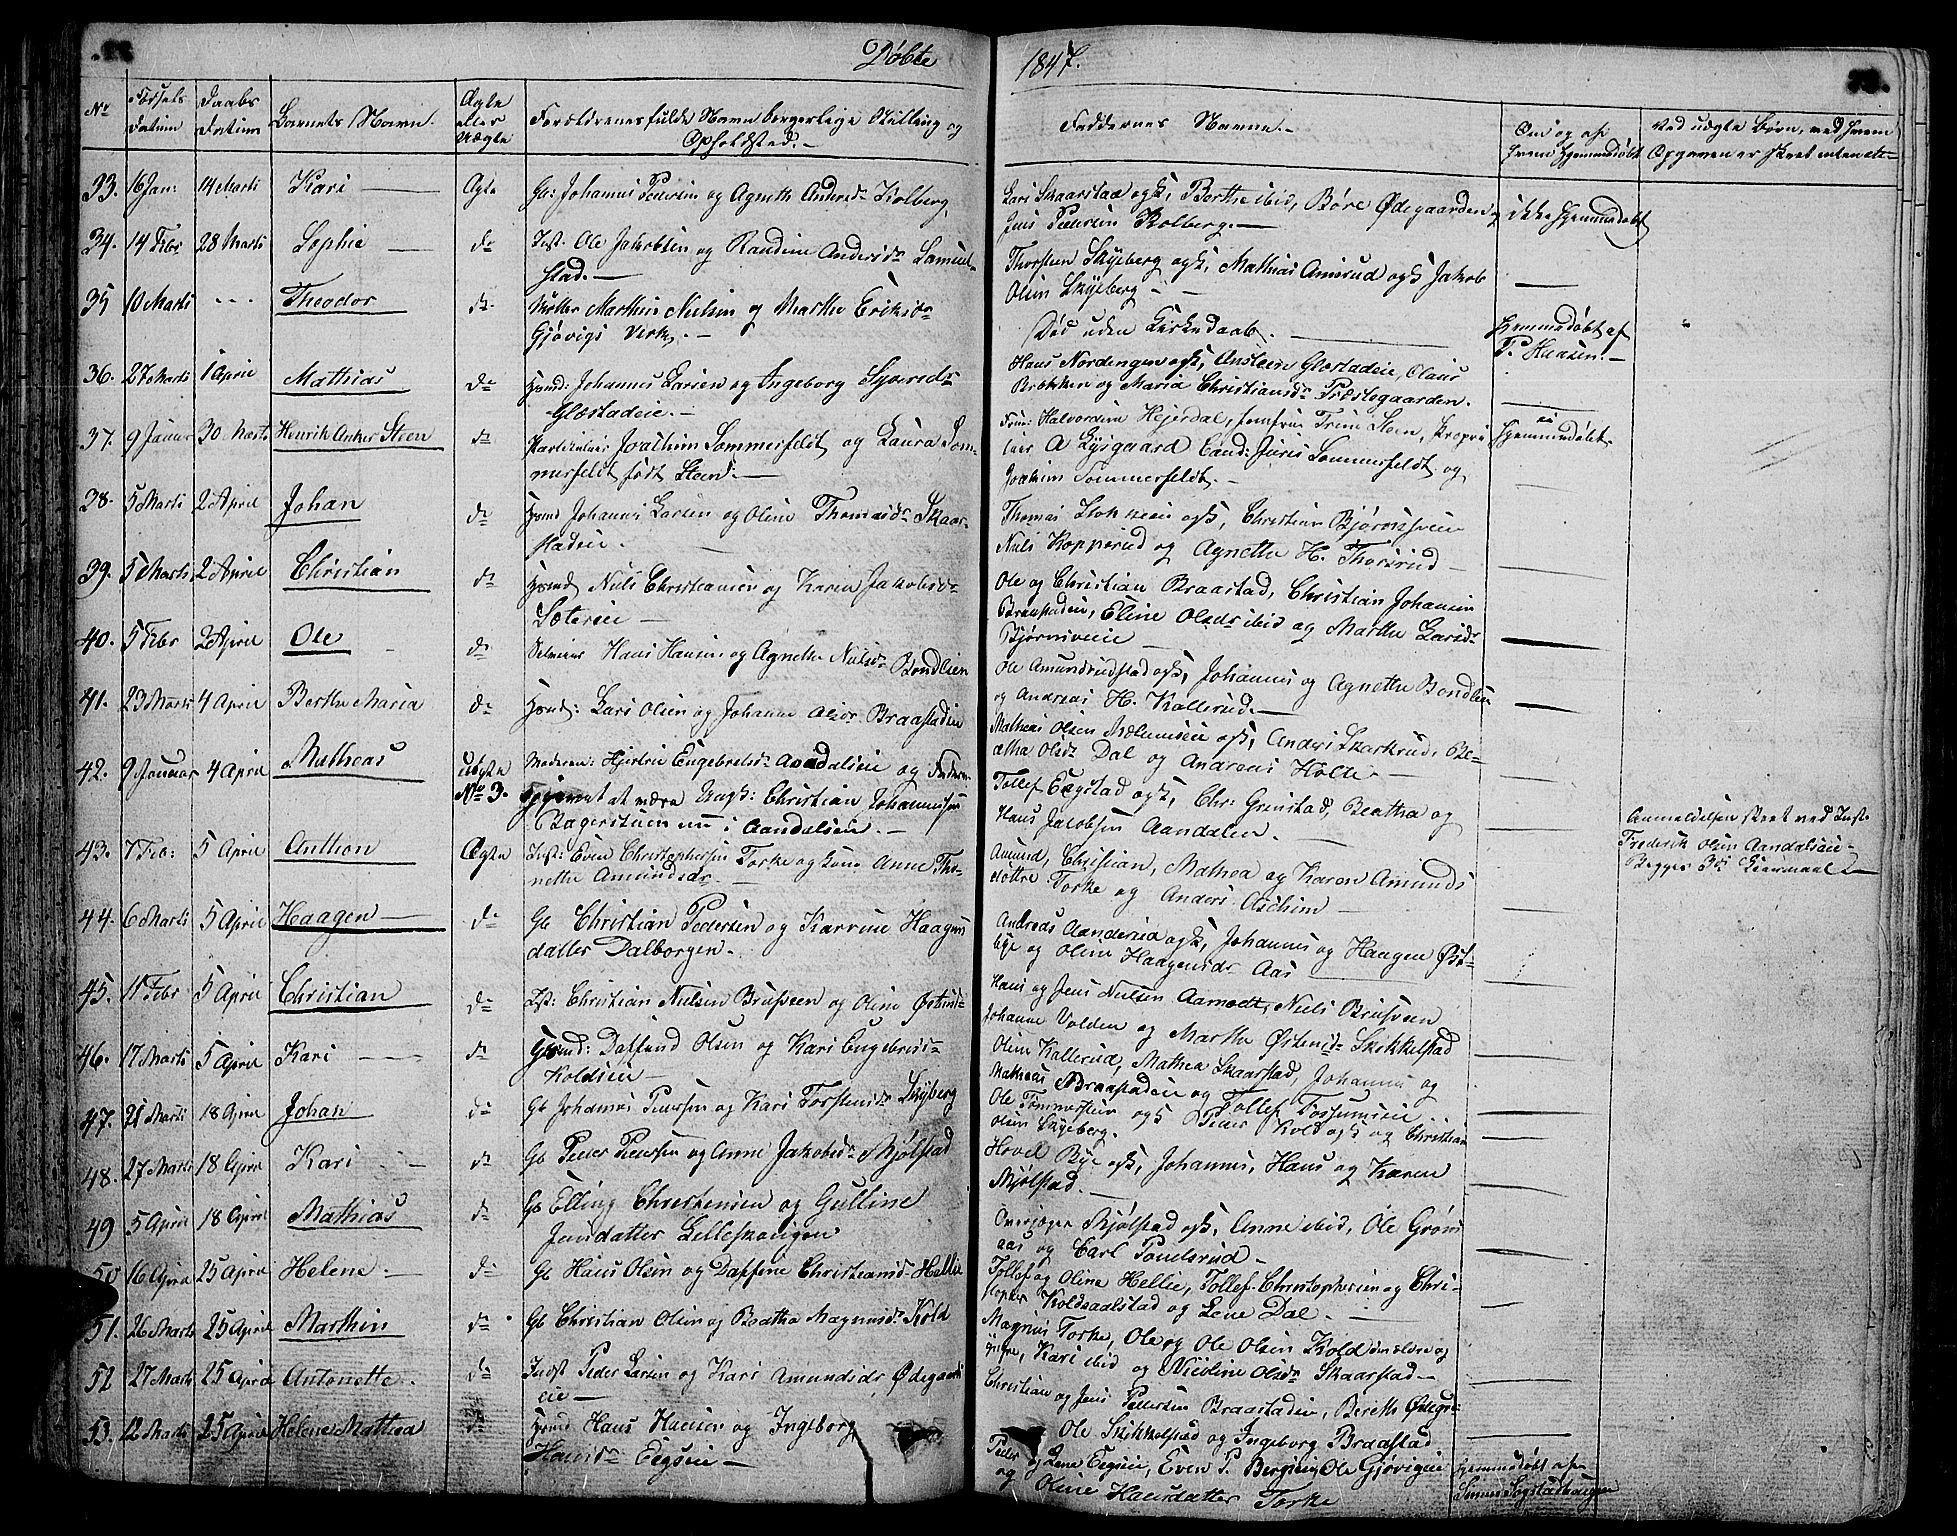 Døbte
1847.
78.
No
Fødsels
Datum
Daabs
Datum
Barnets Navn.
Ægte
eller
Uægte
Forældrenes fulde Navn borgerlige Stilling og
Opholdsted.
Faddernes Navne.
Om og af
hvem hjemmedøbt
Ved uægte Børn, ved hvem
Opgaven er skeet
33. 16 Jan: 14 Marts Kari Ægte Gb: Johannes Pedersen og Agnethe Andersdr Kolberg.
Lars Skaarstad og k, Berthe ibid, Børe Ødegaarden
Jens Pedersen Kolberg.
ikke hjemmedøbt
34. 14 Febr 28 Marts Sophie do Inst. Ole Jakobsen og Randine Andersdr Samuel-
stad.
Thorsteen Skyeberg og k, Mathias Amsrud og k Jakob
Olsen Skyeberg
35 10 Marts Theodor do Møller Marthin Nielsen og Marthe Eriksdr
Gjøvigs Verk.
Død uden Kirkedaab.
Hjemmedøbt af
P. Hansen.
36. 27 Marts 1 April Mathias do Hmd: Johannes Larsen og Ingeborg Syversdr
Glæstadeie.
Hans Nordengen og k, Ansteen Glæstadeie, Olaus
Brækken og Maria Christiansdr Præstegaarden.
37. 9 Januar 30 Marts Henrik Anker Steen do Joachim Sommerfeldt og Laura Som-
merfeldt født Steen.
Hejerdal, Jomfrue Trine Steen, Propri
tair A Lysgaard Cand: Juris Sommerfeldt og
Joachim Sommerfeldt.
Hjemmedøbt
38. 5 Marts 2 April Johan do Hmd Johannes Larsen og Oline Thomasdr Skaar-
stadeie.
Thomas Stokkeeie og k, Christian Bjørnsveie
Niels Kopperud og Agnethe H. Thorsrud
39. 5 Marts 2 April Christian do Hmd Niels Christiansen og Karen Jakobsdr
Sætereie
Ole og Christian Braastad, Christian Johansen
Braastadeie, Eline Olsdr ibid og Marthe Larsdr
Bjørnsveie
40. 5 Febr 2 April Ole do Selveier Hans Hansen og Agnethe Nielsdr Bondlien
Ole Amundrudstad og k, Johannes og Agnethe Bondlien
og Andreas H. Kallerud.
41. 23 Marts 4 April Berthe Maria do Hmd: Lars Olsen og Johanne Olsdr Braastadeie
Mathias Olsen Melumseie og k, Anders Skarkrud, Be-
atha Olsdr Dal og Andreas Holte
42. 9 Januar 4 April Matheas Uægte
No 3. Moderen: Engebretsdr Aandalseie og Faderen
opgivet at være Ungk: Christian Johannessen
Bagerstuen nu i Aandalseie.
Tollef Eegstad og k, Chr: Grimstad, Beatha og
Hans Jacobsen Aandalen.
Anmeldelsen skeet ved Inst.
Frederik Olsen Aandalseie
Begges 3die Leiermaal
43. 7 Feb: 5 April Anthon Ægte Inst: Even Christophersen Torke og kone Anne Tho-
nette Amundsdr
Amund, Christian, Mathea og Karen Amunds
døttre Torke og Anders Aschim
44. 6 Marts 5 April Haagen do Gb Christian Pedersen og Karrine Haagens
datter Dalborgen.
Andreas Aanderud og k, Johannes og Haagen Øst-
bye og Oline Haagensdr Aas
45. 11 Febr 5 April Christian do Ist: Christian Nielsen Brusveen og Oline Østensdr
Hans og Jens Nielsen Aamodt, Niels Brusveen
Johanne Volden og Marthe Østensdr Skikkelstad
46. 17 Marts 5 April Kari do Hmd: Daffind Olsen og Kari Engebretsdr
Koldseie
Oline Kallerud, Mathea Skaarstad, Johannes og
Matheas Braastadeie og Tollef Tossumseie
47. 21 Marts 18 April Johan do Gb Johannes Pedersen og Kari Torstensdr Skyberg
Ole Tømmerstuen og k Peder Kold og k og Christian
Olsen Skyeberg.
48. 27 Marts 18 April Kari do Gb Peder Pedersen og Anne Jakobsdr Mjølstad
Hovel Bye og k, Johannes, Hans og Karen
Mjølstad.
49 5 April 18 April Mathias do Gb Elling Christensen og Gulline
Jensdatter Lilleskougen
Mjølstad og k, Anne ibid, Ole Grøns
aas og Carl Poulsrud
50 16 April 25 April Helene do Gb Hans Olsen og Daffine Christiansdr Helle
Tollef og Oline Helle, Tollef Christophersen og Chri-
stopher Koldsaalstad og Lene Dal
51. 26 Marts 25 April Marthin do Gb Christian Olsen og Beatha Magnusdr Kold
Magnus Torke, Ole og Ole Olsen Kold den ældre og
yngre, Kari ibid og Nicoline Olsdr Skaarstad
52 27 Marts 25 April Antonette do Indst Peder Larsen og Kari Amundsdr Ødegaard
eie
Christian og Jens Pedersen Braastadeie, Bereth Ødegr-
Ole Skikkelstad og Ingeborg Braastad
53. 12 Marts 25 April Helene Mathea do Hmd Hans Hansen og Ingeborg
Hansdr Eegseie
Peder og Lene Eegseie, Even P. Bergseie, Ole Gjøvigeie
og Oline Hansdatter Torke
Hjemmedøbt af